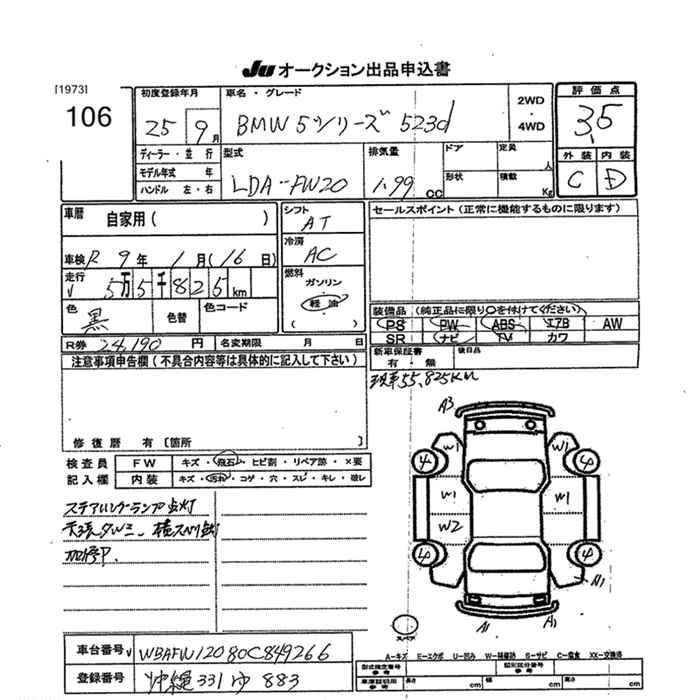 JU オークション出品申込書
[1973]
106
初度登録年月
25 9月
車名・グレード
BMW 5シリーズ 523d
2WD
・
4WD
評価点
3.5
外装 内装
C D
ディーラー・並行
モデル年式 年
ハンドル 左・右
型式
LDA-FW20
排気量
1.99 cc
ドア
定員
人
形状
積載
Kg
車歴
自家用( )
シフト
AT
セールスポイント(正常に機能するものに限ります)
車検 R 9年 1月(16日)
冷房
AC
走行
5万5千825km
燃料
ガソリン
軽油
( )
色
黒
色替
色コード
装備品(純正品に限り○を付けてください)
PS PW ABS エアB AW
SR ナビ TV カワ
R券 24,190円
名変期限 月 日
新車保証書
有・無
後日品
注意事項申告欄(不具合内容等は具体的に記入して下さい)
55,825KM
修復歴 有〔箇所 〕
検査員
記入欄
FW キズ・飛石・ヒビ割・リペア跡・×要
内装 キズ・汚れ・コゲ・穴・スレ・キレ・破レ
ステアリングランプ点灯
天張タルミ、横スベリ灯
加修中.
A3
W1 W1
W1 W1
W2
A1
A1 A1
スペア
A-キズ E-エクボ U-凹み W-補修跡 S-サビ C-腐食 XX-交換済
車台番号 WBAFW12080C849266
登録番号 沖縄 331 ゆ 883
型式指定番号
参考
類別区分番号
参考
車庫証明用
参考
長さ cm
幅 cm
高さ cm